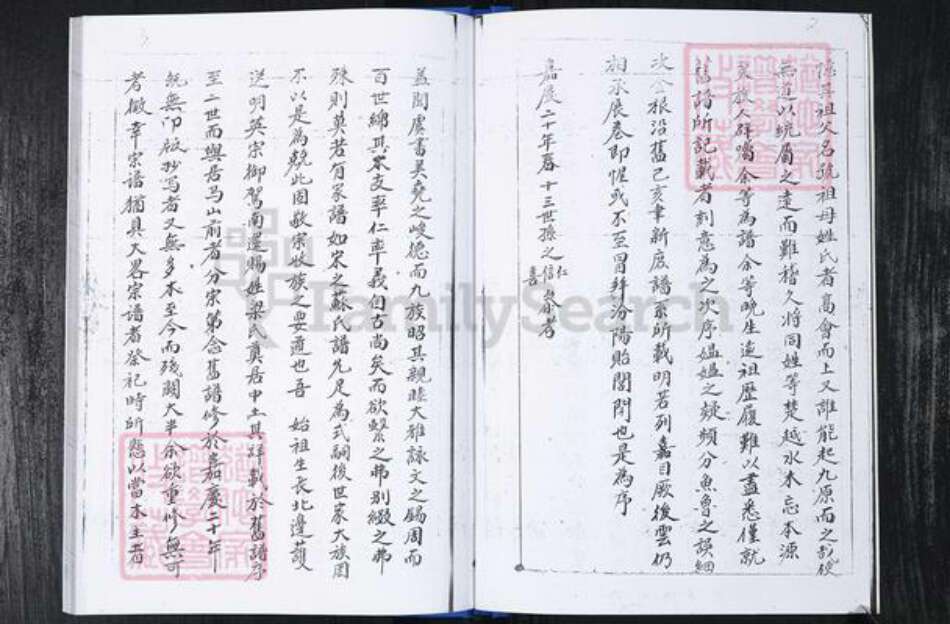 2
祖父名號祖母姓氏者高曾而上又誰能起九原而之
無道以統屬之遠而難稽久將同姓等楚越水木忘本源
族人群囑余等為譜余等晚生遠祖歷履難以盡悉僅就
舊譜所記載者刻意為之次序媪媪之疑頻分魚魯之誤細
次金根沿舊己亥聿新庶譜系所載明若列眉目厥後雲仍
相承展卷即惺或不至冒拜汾陽貽閣閈也是為序
嘉慶二十年春十三世孫之仁信喜
3
蓋聞虞書美堯之峻德而九族昭其親睦大雅詠文之錫周而
百世綿其本支率仁率義自古尚矣而欲繫之弗別綴之弗
殊則莫若有家譜如宋之蘇氏譜先足為式嗣後世家大族罔
不以是為兢此固敬宗收族之要道也吾 始祖生長北邊護
送明英宗御駕南還賜姓梁氏奠居中土其詳載於舊譜序
至二世而興居馬山前者分宗第念舊譜修於嘉慶二十年
既無印版抄寫者又無多本至今而殘闕大半余欲重修無可
者做幸宗譜猶具大畧宗譜者祭祀時所懸以當木主者
FamilySearch